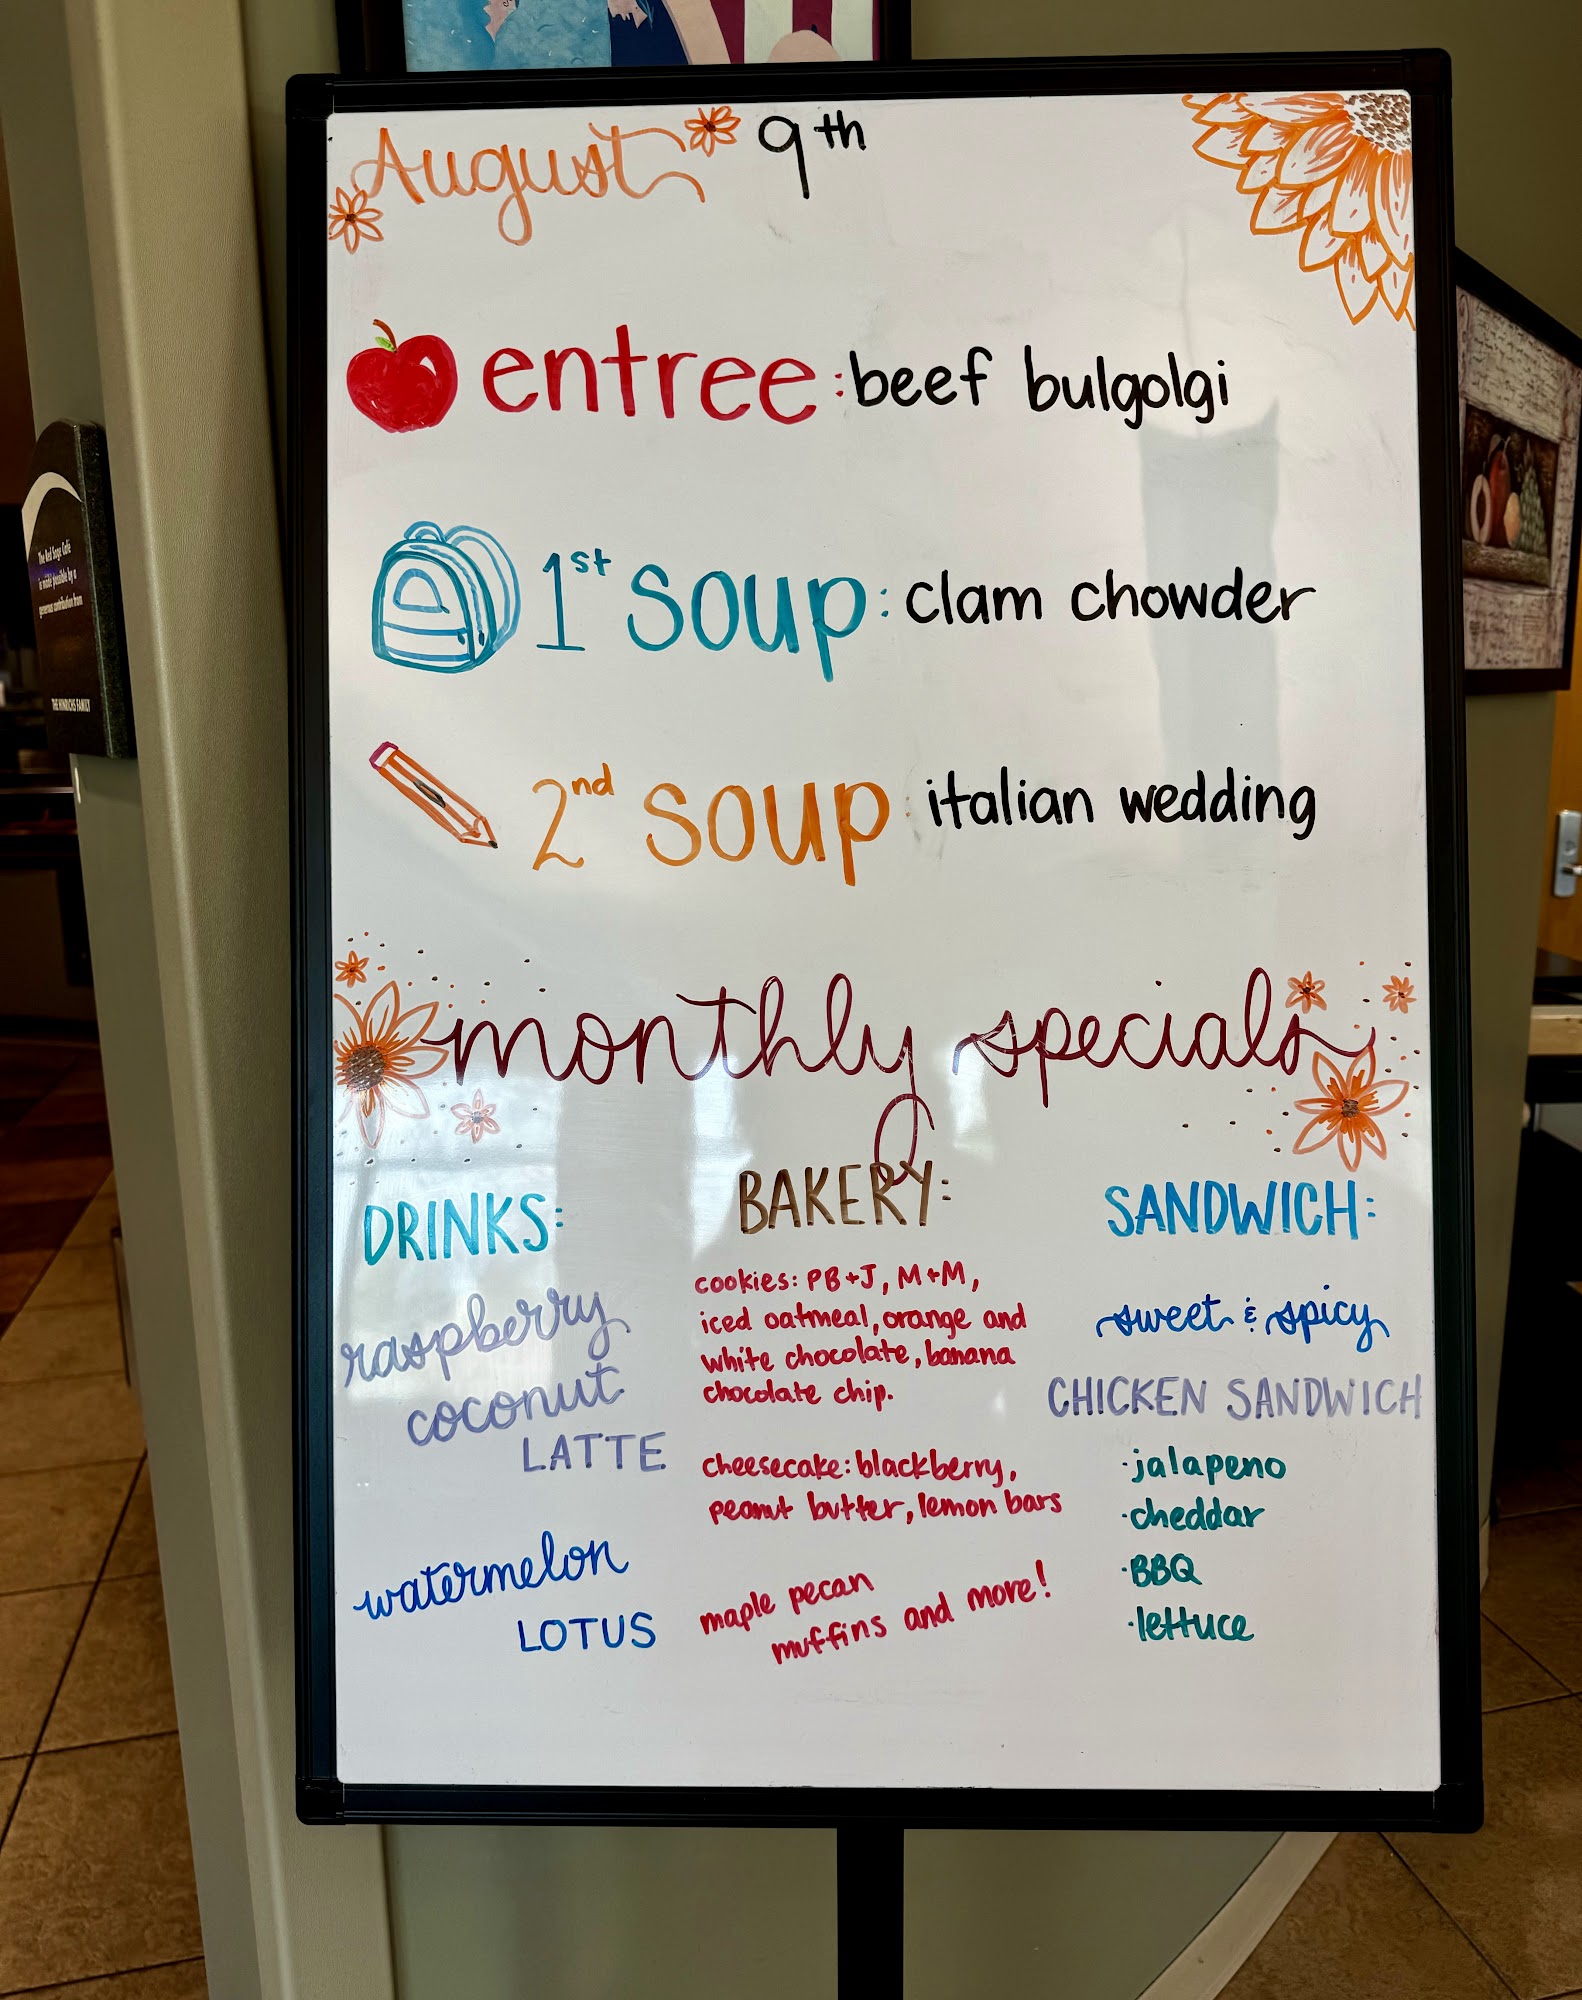 August 9th
entree: beef bulgolgi
1st soup: clam chowder
2nd soup: italian wedding
monthly specials
DRINKS:
raspberry
coconut
LATTE
watermelon
LOTUS
BAKERY:
cookies: PB+J, M+M,
iced oatmeal, orange and
white chocolate, banana
chocolate chip.
cheesecake: blackberry,
peanut butter, lemon bars
maple pecan
muffins and more!
SANDWICH:
sweet & spicy
CHICKEN SANDWICH
·jalapeno
·cheddar
·BBQ
·lettuce
The Red Sage Café
is made possible by a
generous contribution from
THE HINRICHS FAMILY